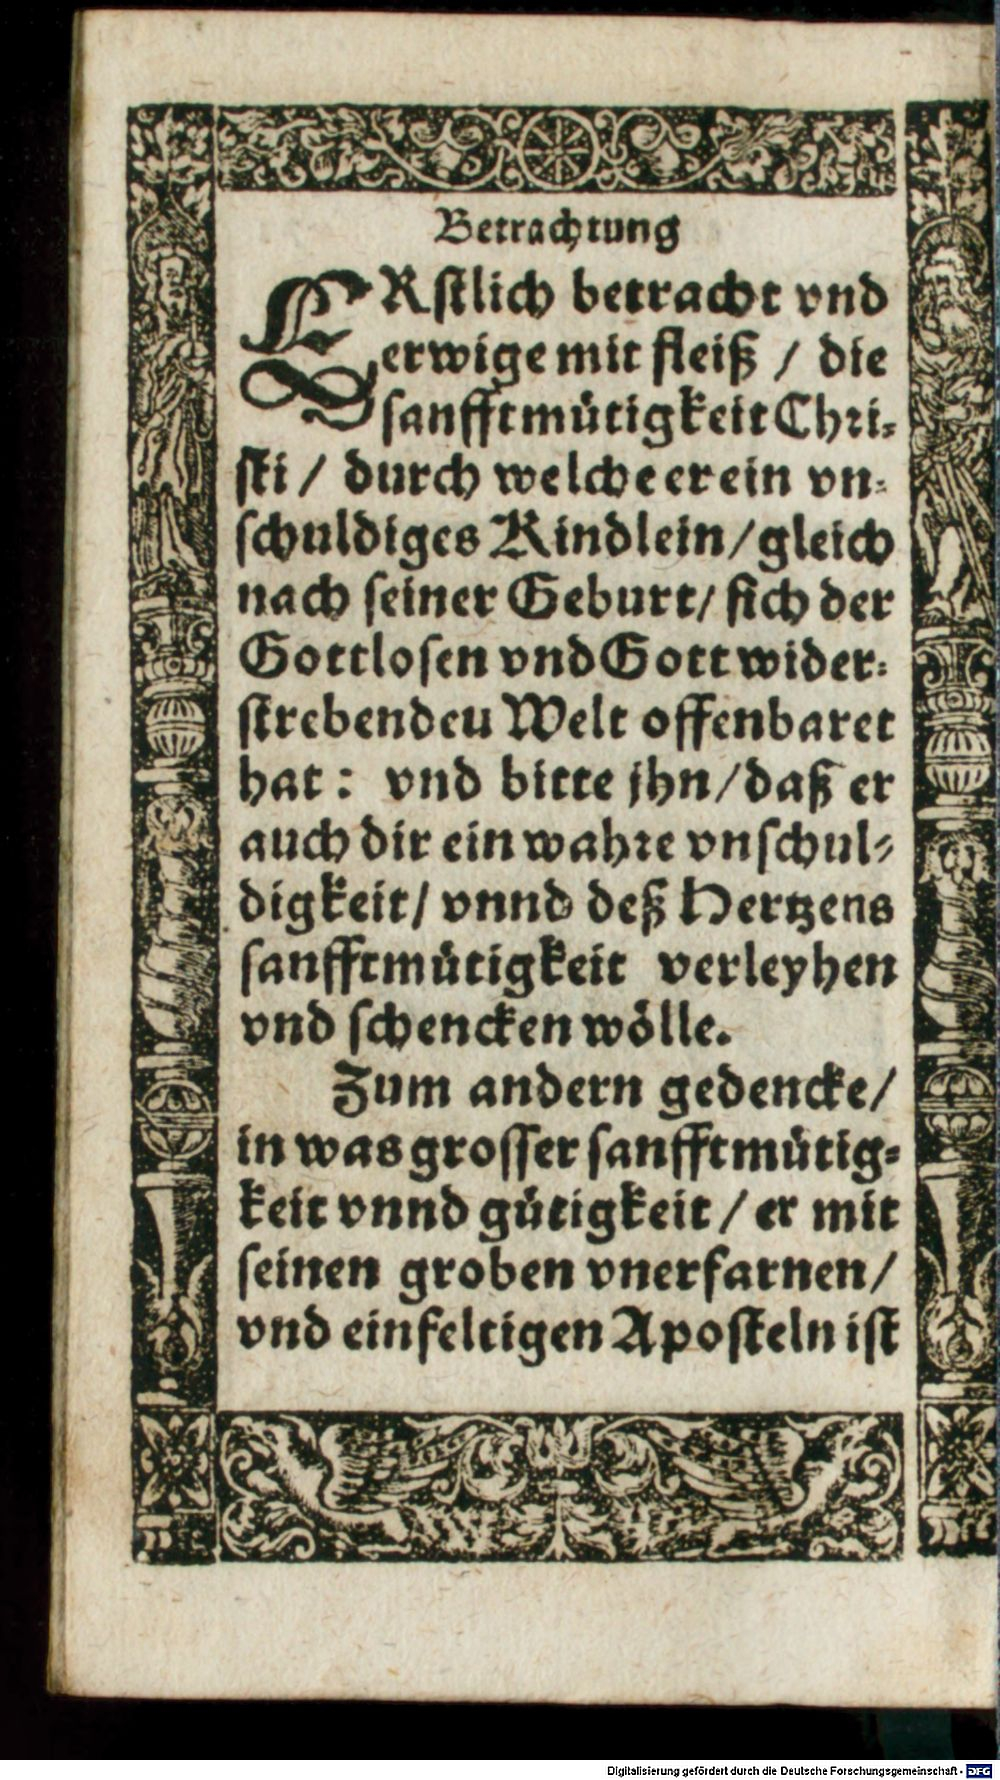 Betrachtung
ERſtlich betracht vnd
erwige mit fleiß / die
ſanfftmütigkeit Chri-
ſti / durch welche er ein vn-
ſchuldiges Kindlein / gleich
nach ſeiner Geburt / ſich der
Gottloſen vnd Gott wider-
ſtrebendeu Welt offenbaret
hat: vnd bitte jhn / daß er
auch dir ein wahre vnſchul-
digkeit / vnnd deß Hertzens
ſanfftmütigkeit verleyhen
vnd ſchencken wölle.
Zum andern gedencke /
in was groſſer ſanfftmütig-
keit vnnd gütigkeit / er mit
ſeinen groben vnerfarnen /
vnd einfeltigen Apoſteln iſt
Digitalisierung gefördert durch die Deutsche Forschungsgemeinschaft - DFG